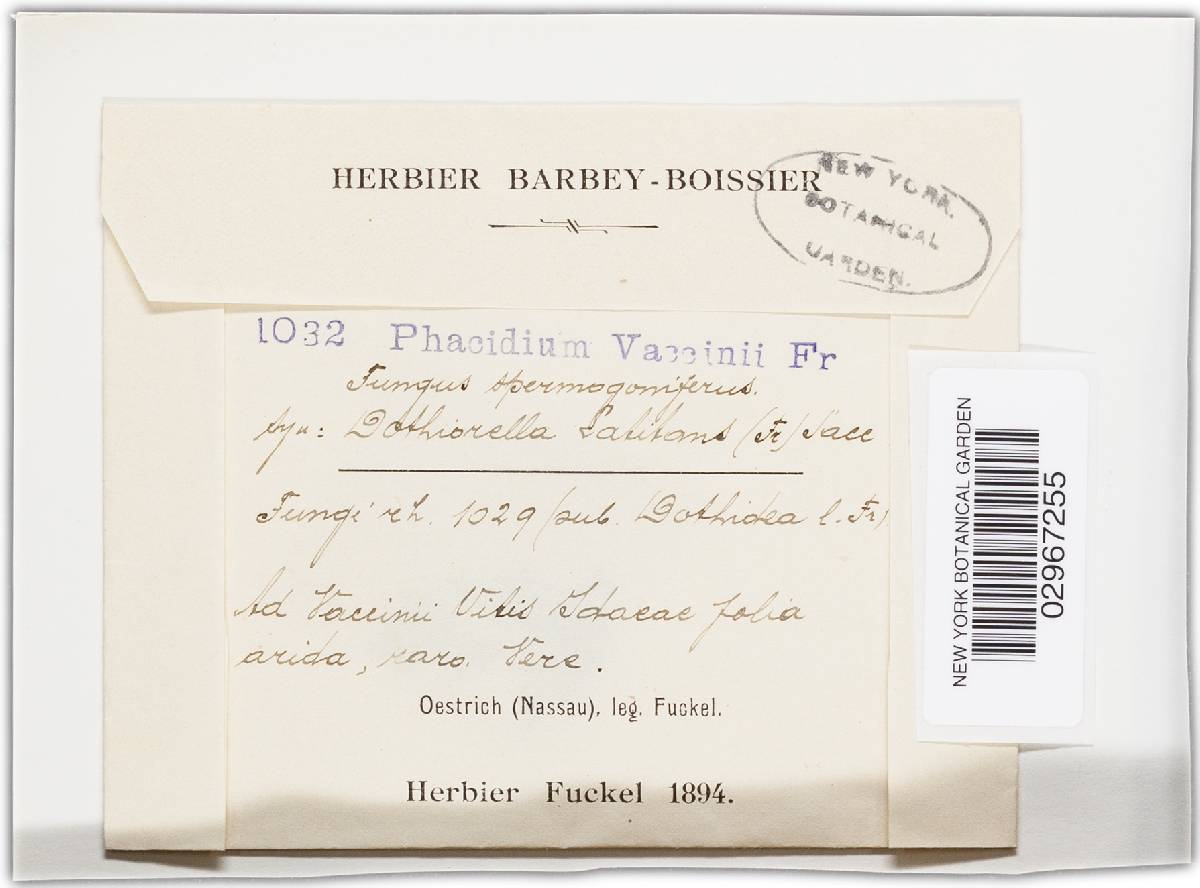 HERBIER BARBEY-BOISSIER
NEW YORK
BOTANICAL
GARDEN.
1032 Phacidium Vaccinii Fr
Fungus spermogoniferus.
syn: Dothiorella Latitans (Fr) Sacc
Fungi rh. 1029 (sub. Dothidea l. Fr)
Ad Vaccinii Vitis Idaeae folia
arida, raro. Vere.
Oestrich (Nassau), leg. Fuckel.
Herbier Fuckel 1894.
NEW YORK BOTANICAL GARDEN
02967255